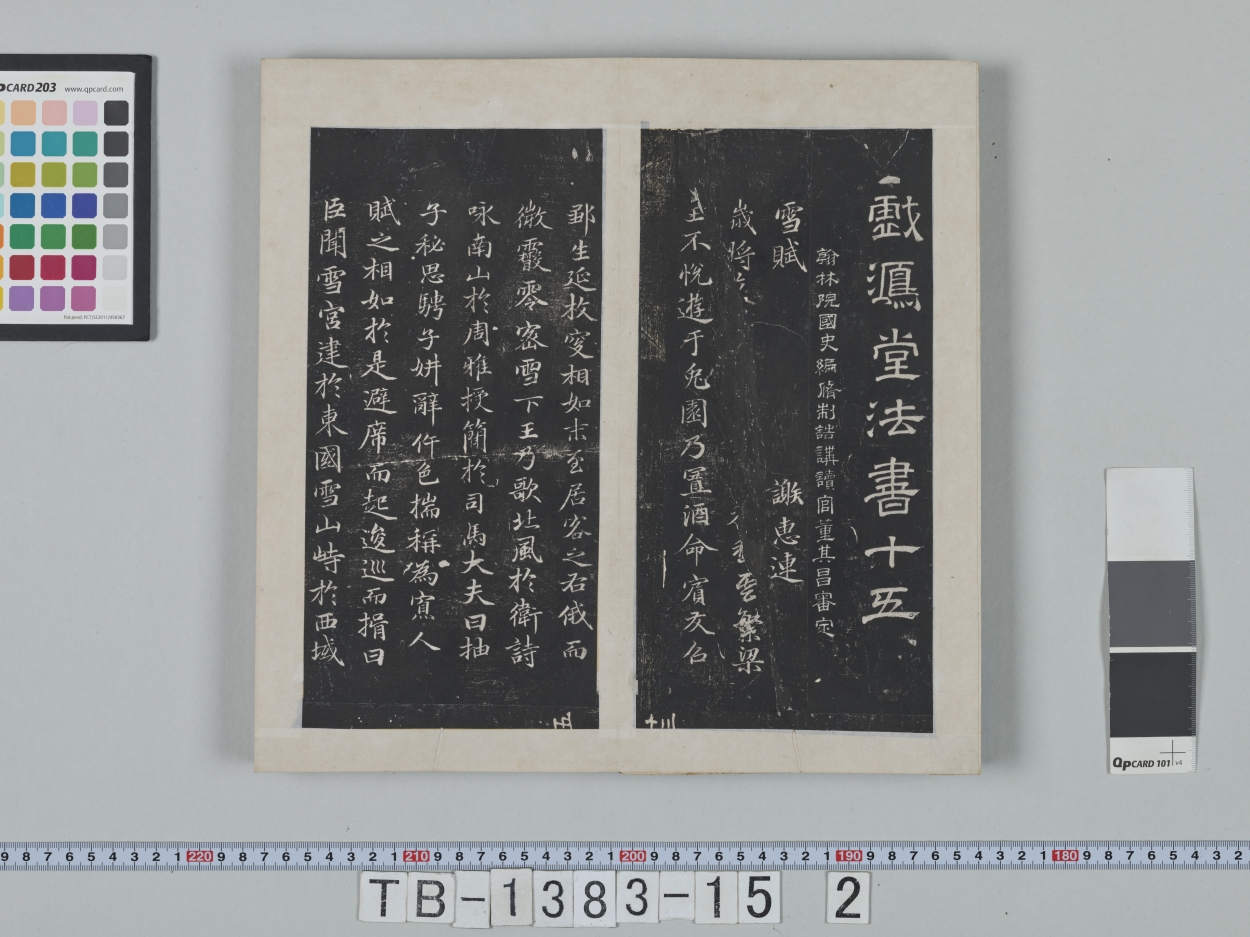 戲鴻堂法書十五
翰林院國史編脩制誥講讀官董其昌審定
雪賦 謝惠連
歲將 雲繁梁
王不悅遊于兔園乃置酒命賓友召
鄒生延枚叟相如末至居客之右俄而
微霰零密雪下王乃歌北風於衛詩
咏南山於周雅授簡於司馬大夫曰抽
子秘思騁子妍辭侔色揣稱為賓人
賦之相如於是避席而起逡巡而揖曰
臣聞雪宮建於東國雪山峙於西域
QPCARD 203 www.qpcard.com
QPCARD 101 v4
9 8 7 6 5 4 3 2 1 220 9 8 7 6 5 4 3 2 1 210 9 8 7 6 5 4 3 2 1 200 9 8 7 6 5 4 3 2 1 190 9 8 7 6 5 4 3 2 1 180 9 8 7 6 5 4 3 2
TB-1383-15 2